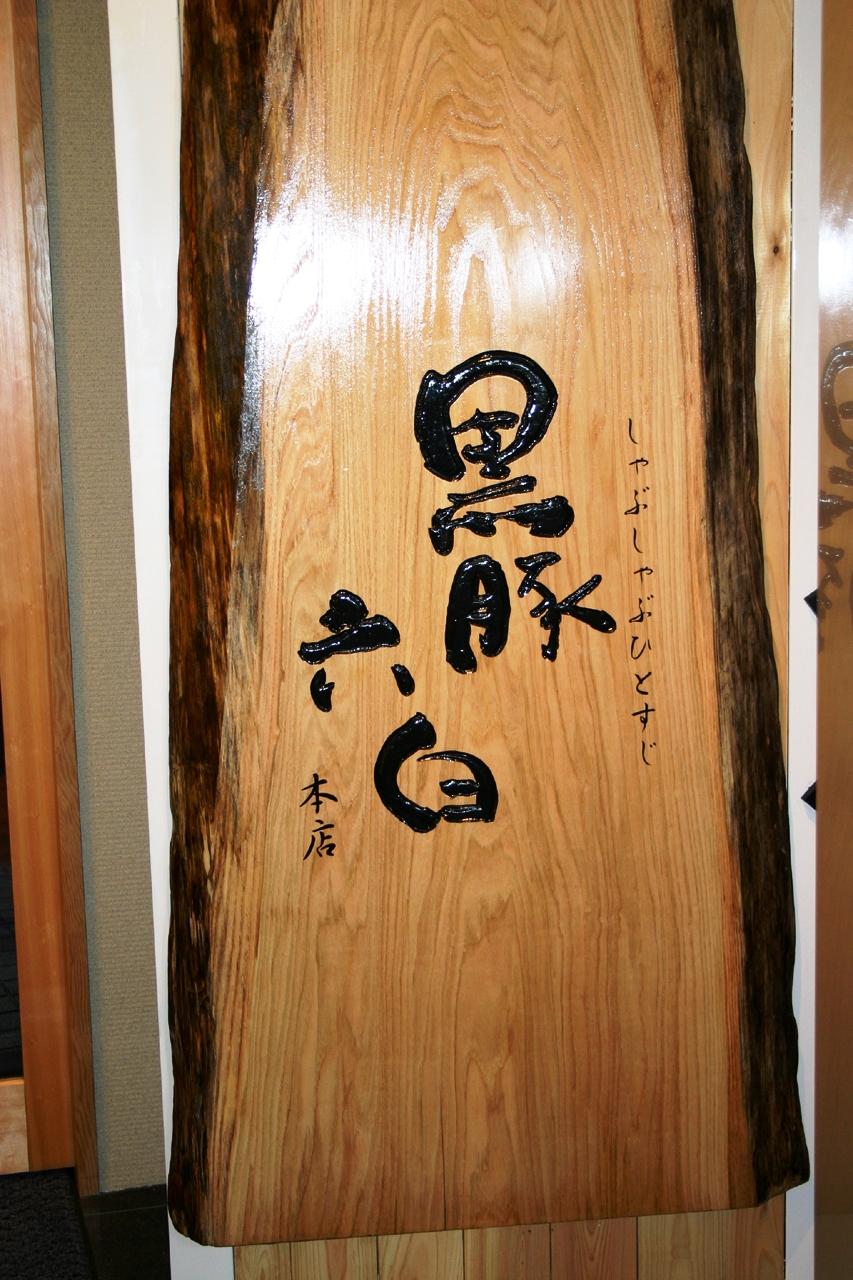 しゃぶしゃぶひとすじ
黒豚
六白
本店